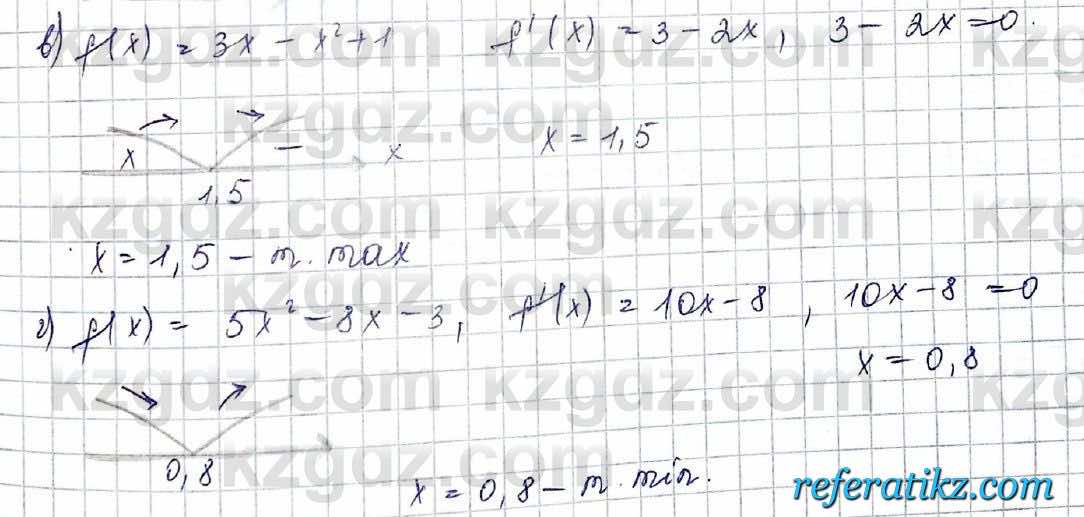 в) f(x) = 3x - x² + 1 f'(x) = 3 - 2x, 3 - 2x = 0.
x - x x = 1,5
1,5
x = 1,5 - т. max
г) f(x) = 5x² - 8x - 3, f'(x) = 10x - 8, 10x - 8 = 0
x = 0,8
0,8
x = 0,8 - т. min.
kzgdz.com
referatikz.com